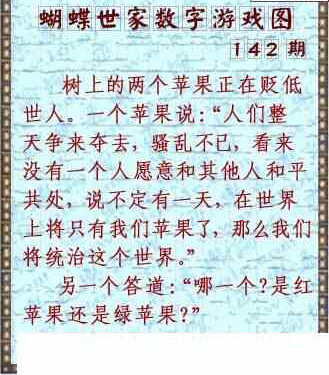 蝴蝶世家数字游戏图
142期
树上的两个苹果正在贬低
世人。一个苹果说:“人们整
天争来夺去，骚乱不已，看来
没有一个人愿意和其他人和平
共处，说不定有一天，在世界
上将只有我们苹果了，那么我们
将统治这个世界。”
另一个答道:“哪一个?是红
苹果还是绿苹果?”